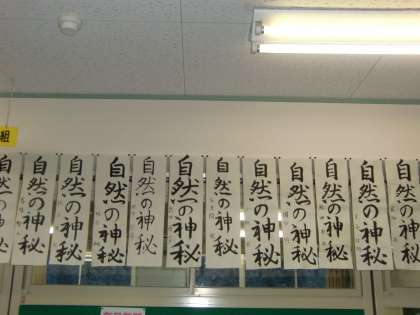 組
自然の神秘
自然の神秘
自然の神秘
自然の神秘
自然の神秘
自然の神秘
自然の神秘
自然の神秘
自然の神秘
自然の神秘
自然の神秘
自然の神秘